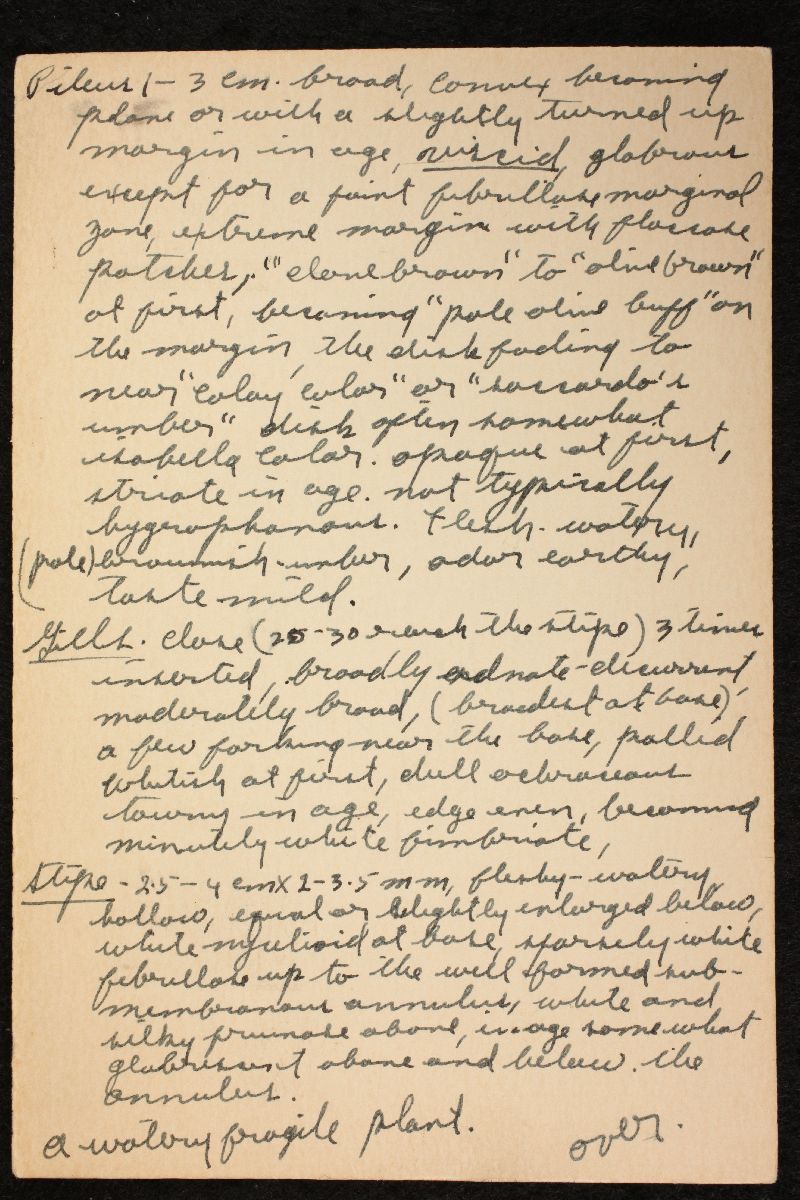 Pileus 1 - 3 cm. broad, convex becoming
plane or with a slightly turned up
margin in age, viscid, glabrous
except for a faint fibrillose marginal
zone, extreme margin with floccose
patches, "clove brown" to "olive brown"
at first, becoming "pale olive buff" on
the margin, the disk fading to
near "clay color" or "saccardo's
umber" disk often somewhat
isabella color. opaque at first,
striate in age. not typically
hygrophanous. Flesh - watery,
(pale) brownish-umber, odor earthy,
taste mild.
Gills. close (25-30 reach the stipe) 3 times
inserted, broadly adnate-decurrent,
moderately broad, (broadest at base),
a few forking near the base, pallid
whitish at first, dull ochraceous
tawny in age, edge even, becoming
minutely white fimbriate,
Stipe - 2.5 - 4 cm X 2-3.5 mm, fleshy-watery,
hollow, equal or slightly enlarged below,
white mycelioid at base, sparsely white
fibrillose up to the well formed sub-
membranous annulus, white and
silky pruinose above, in age somewhat
glabrescent above and below. the
annulus.
a watery fragile plant.
over.